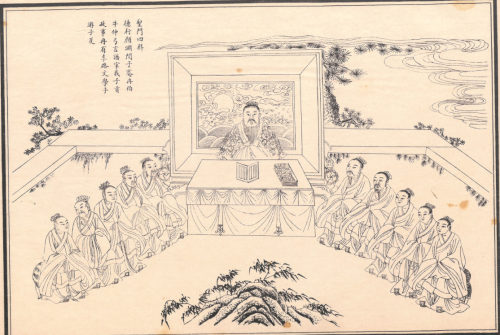 聖門四科
德行顏淵閔子騫冉伯
牛仲弓言語宰我子貢
政事冉有季路文學子
游子夏